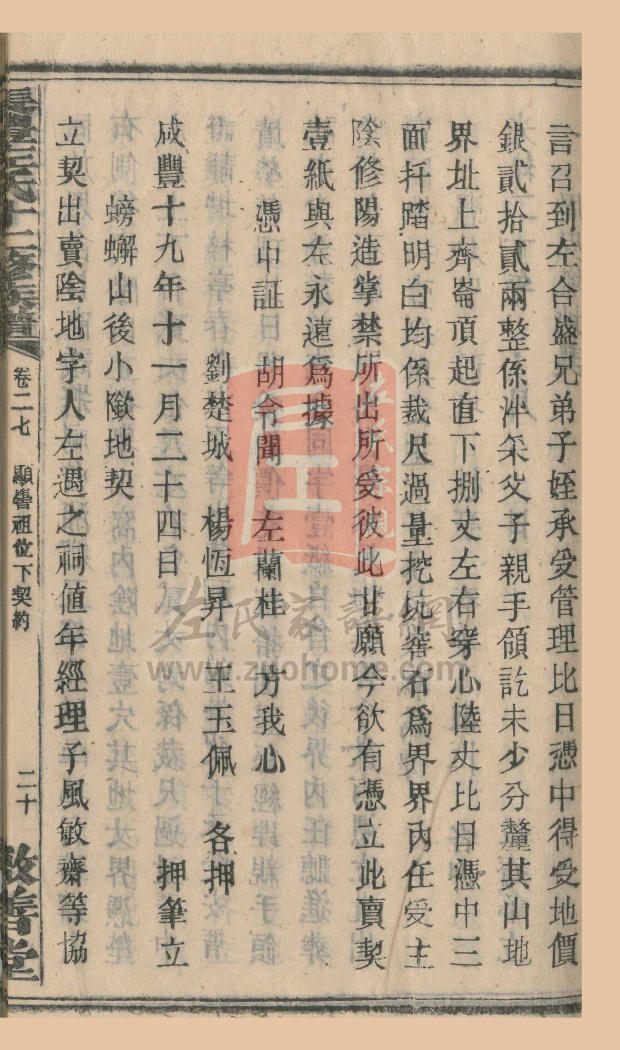 言召到左合盛兄弟子姪承受管理比日憑中得受地價
銀貳拾貳兩整係泮采父子親手領訖未少分釐其山地
界址上齊崙頂起直下捌丈左右穿心陸丈比日憑中三
面扦踏明白均係裁尺過量挖坑薶石爲界界內任受主
陰修陽造掌禁所出所受彼此甘願今欲有憑立此賣契
壹紙與左永遠爲據
憑中証 胡令聞 左蘭桂 方我心
劉楚城 楊恆昇 王玉佩 各押
咸豐十九年十一月二十四日 押筆立
螃蠏山後小陂地契
立契出賣陰地字人左遇之祠值年經理子風敏齋等協
左氏十二修族譜
卷二七 顯譽祖位下契約 二十
敦善堂
左氏家譜網
www.zuohome.com